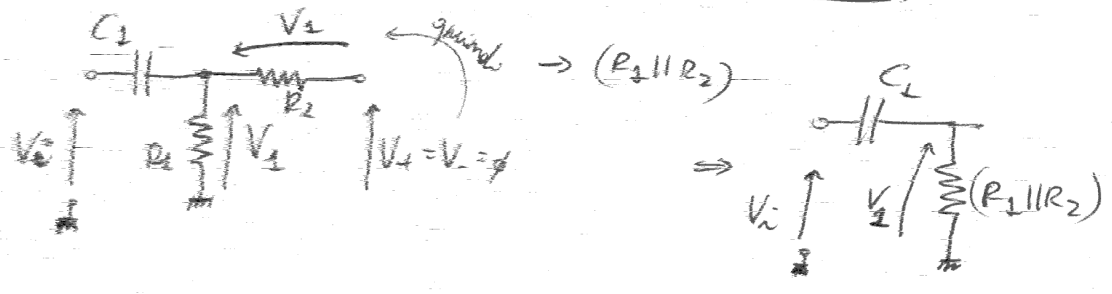 C1
V1
quindi
→ (R1||R2)
R2
Vi
R1
V1
V+ = V- = 0
⇒
C1
Vi
V1
(R1||R2)